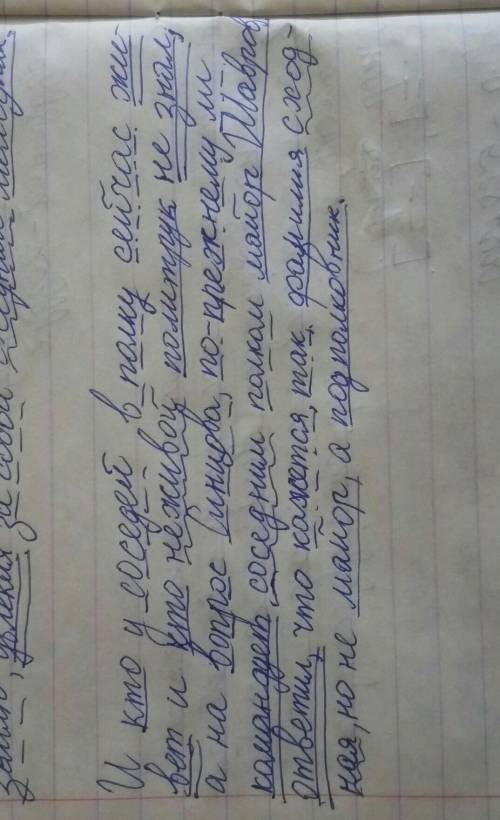 зами, увлекая за собой
И кто у соседей в полку сейчас жи-
вет и кто неживой политрук не знал,
а на вопрос Синцова, по-прежнему ли
командует соседним полком майор Шавров
ответил, что кажется, так, фамилия сход-
ная, но не майор, а подполковник.